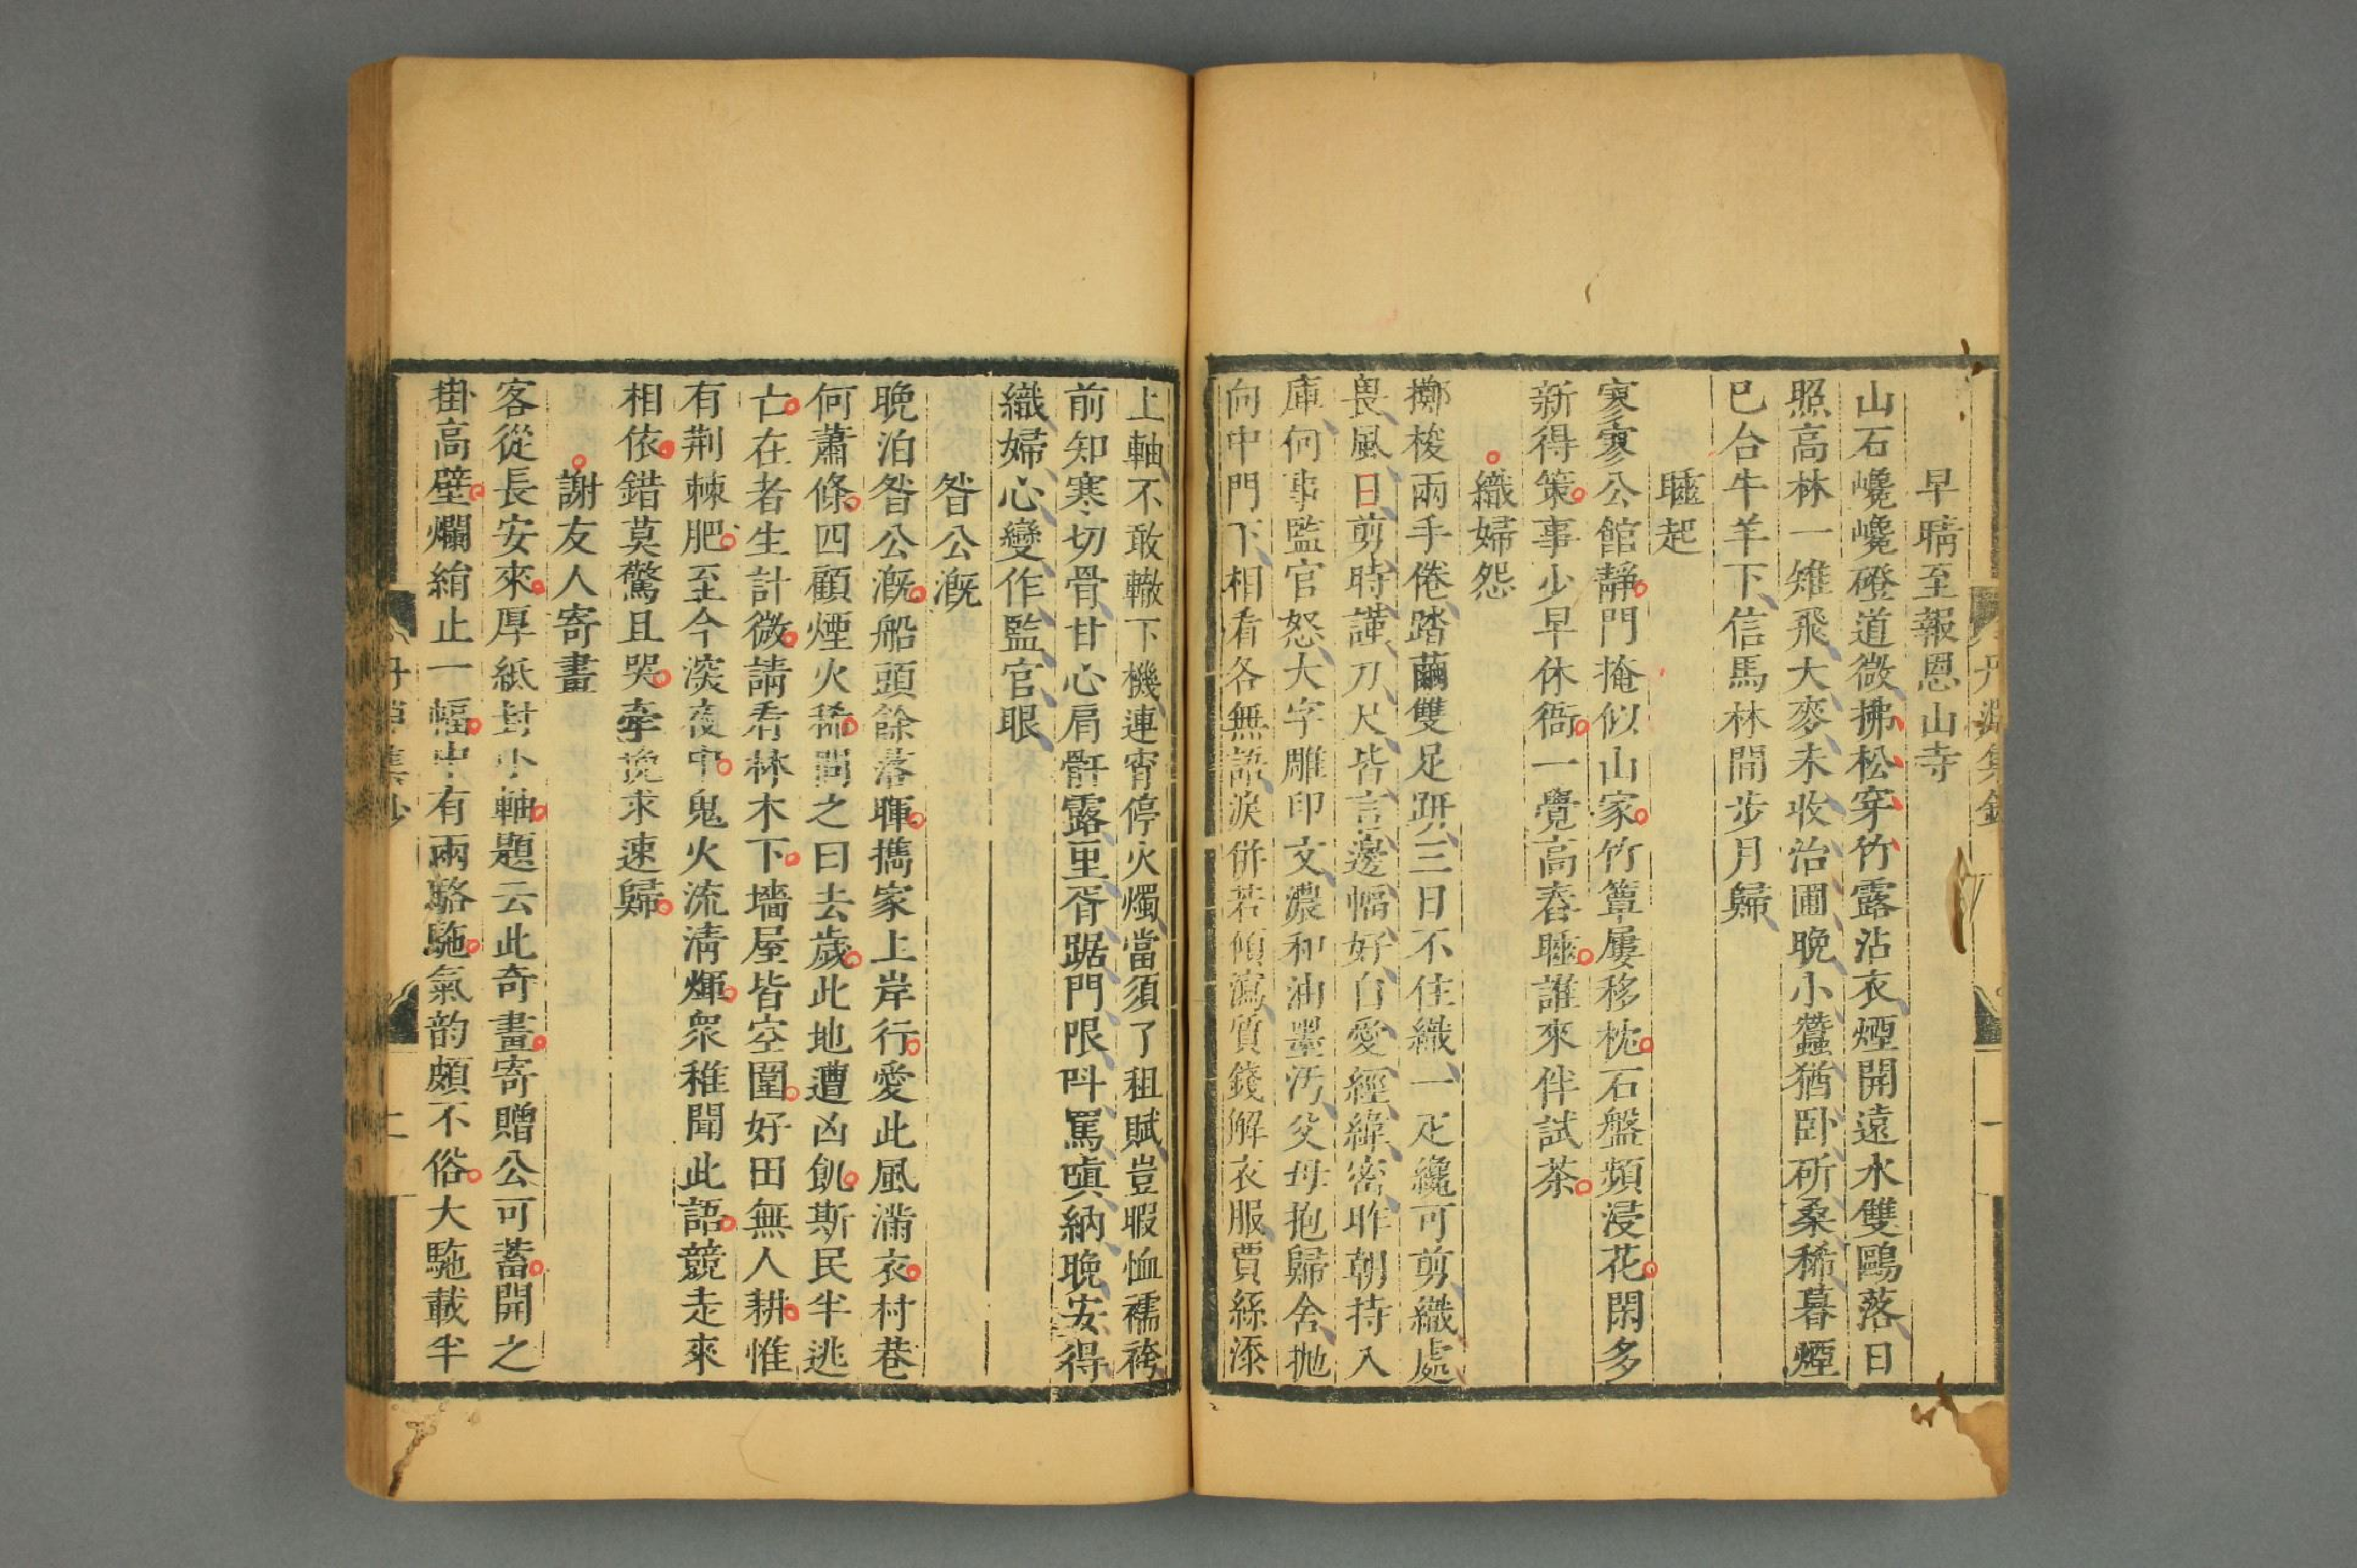 丹淵集鈔
一
早晴至報恩山寺
山石巉巉磴道微拂松穿竹露沾衣煙開遠水雙鷗落日
照高林一雉飛大麥未收治圃晚小蠶猶臥斫桑稀暮煙
已合牛羊下信馬林間步月歸
睡起
寥寥公館靜門掩似山家竹簟屢移枕石盤頻浸花閑多
新得策事少早休衙一覺高舂睡誰來伴試茶
織婦怨
擲梭兩手倦踏繭雙足趼三日不住織一疋纔可剪織處
畏風日剪時謹刀尺皆言邊幅好自愛經緯密昨朝持入
庫何事監官怒大字雕印文濃和油墨汚父母抱歸舍拋
向中門下相看各無語淚併若傾瀉質錢解衣服買絲添
上軸不敢輟下機連宵停火燭當須了租賦豈暇恤襦袴
前知寒切骨甘心肩骭露里胥踞門限呌罵嗔納晚安得
織婦心變作監官眼
昝公漑
晚泊昝公漑船頭餘落暉攜家上岸行愛此風滿衣村巷
何蕭條四顧煙火稀問之曰去歲此地遭凶飢斯民半逃
亡在者生計微請看林木下墻屋皆空圍好田無人耕惟
有荆棘肥至今深夜中鬼火流清輝衆稚聞此語競走來
相依錯莫驚且哭牽挽求速歸
謝友人寄畫
客從長安來厚紙封小軸題云此奇畫寄贈公可蓄開之
掛高壁爛絹止一幅中有兩駱駞氣韵頗不俗大駞載半